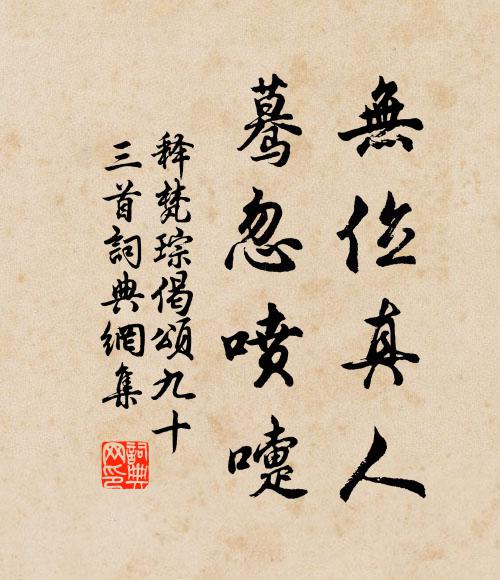 無位真人
驀忽噴嚏
釋梵琮偈頌九十
三首詞典網集
詞典網印